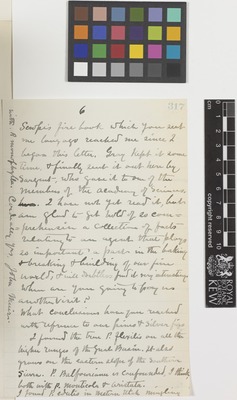 6
317
Sempers fire book which you sent
me long ago reached me since I
began this letter. Gray kept it some
time & finally sent it out here by
Sargent, who gave it to one of the
members of the academy of Sciences
I have not yet read it, but
am glad to get hold of so com-
prehensive a collection of facts
relating to an agent that plays
so important a part in the making
& breaking & building of our pine
woods, & will doubtless find it very interesting
When are you going to pay us
another visit?
What conclusions have you reached
with reference to our pines & Silver firs
I found the true P. flexilis on all the
higher ranges of the Great Basin. It also
grows on the eastern slope of the Southern
Sierra. P. Balfouriana is confounded, I think,
both with P. monticola & aristata.
I found P. edulis in eastern Utah mingling
with P. monophylla. Cordially yrs, John Muir.
copyright reserved
KEW